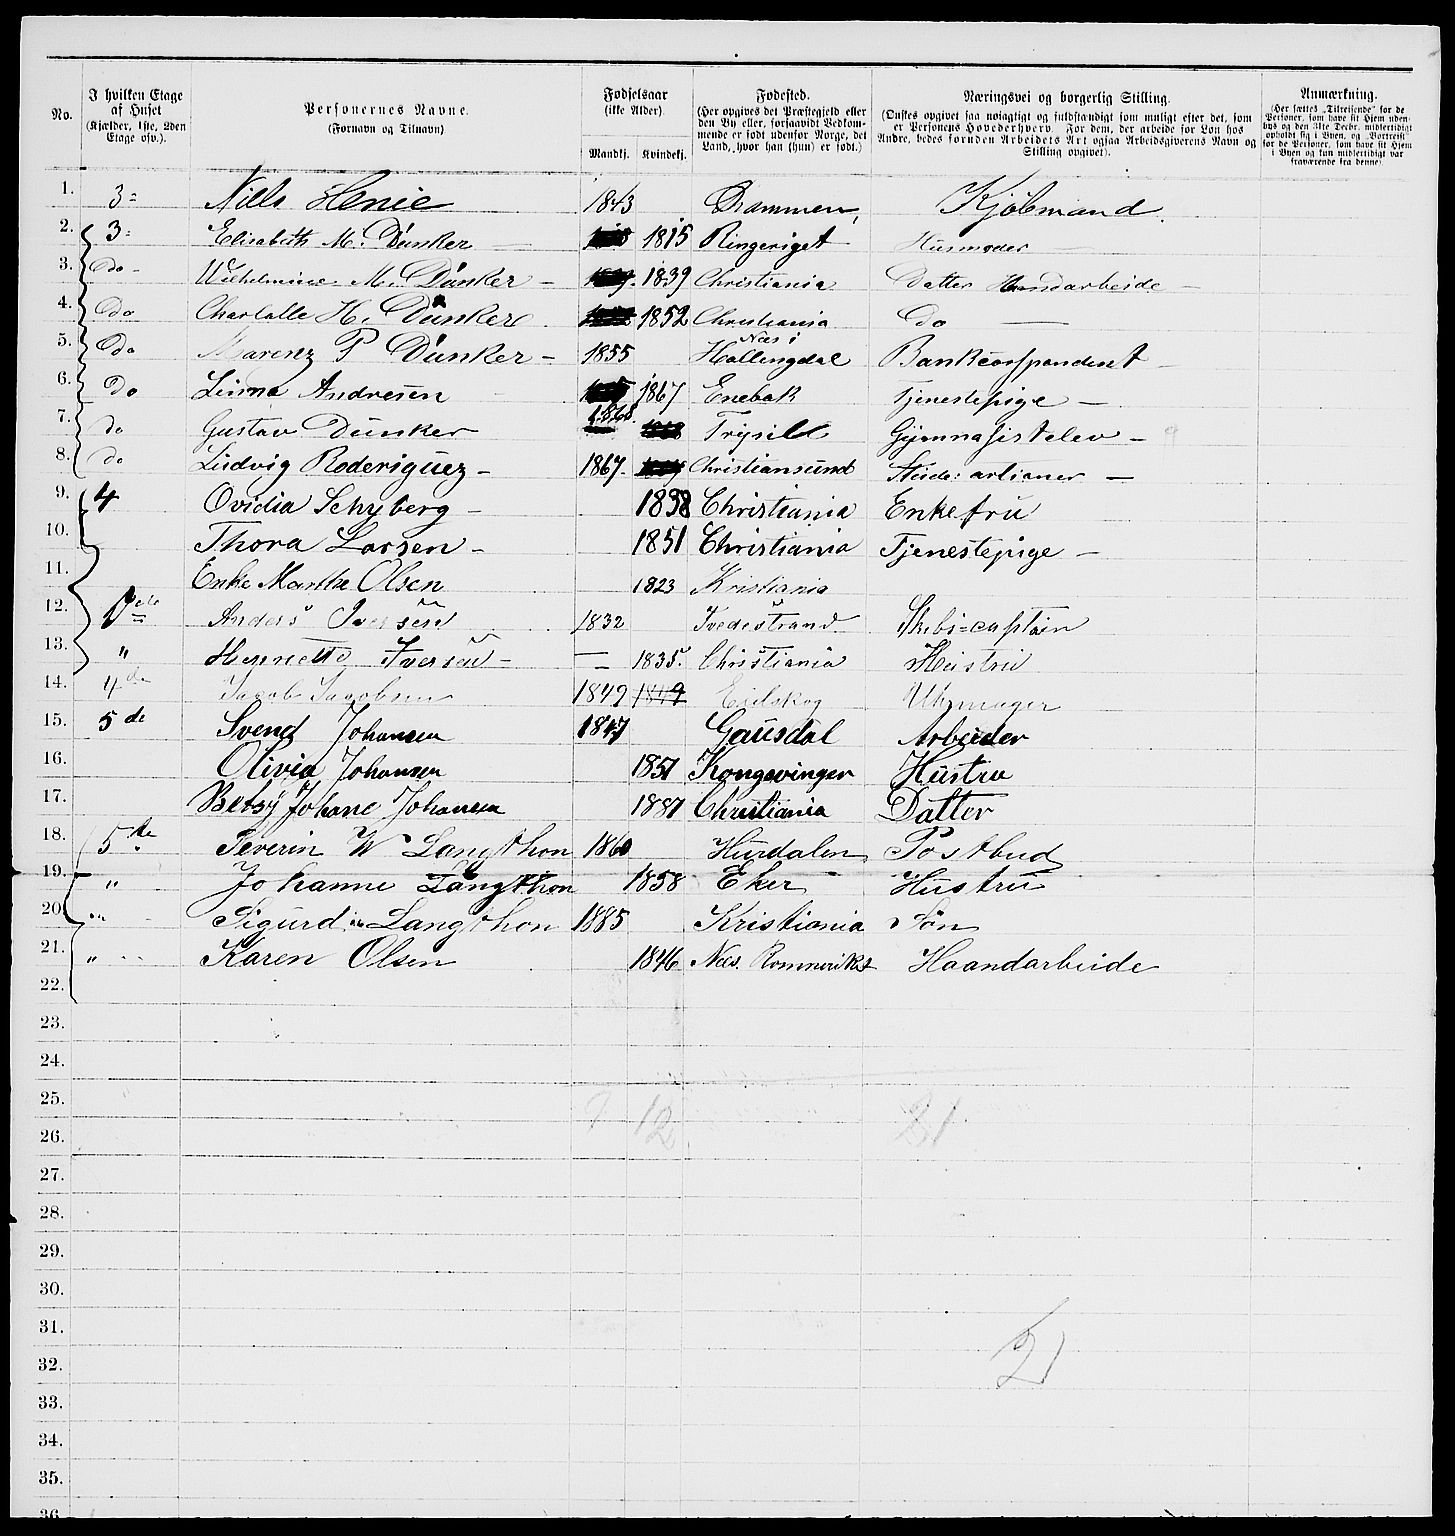 No. I hvilken Etage af Huset (Kjælder, 1ste, 2den Etage osv.). Personernes Navne. (Fornavn og Tilnavn). Fødselsaar (ikke Alder). Mandkj. Kvindekj. Fødested. (Her opgives det Præstegjeld eller den By eller, forsaavidt Vedkommende er født udenfor Norge, det Land, hvor han (hun) er født.) Næringsvei og borgerlig Stilling. (Ønskes opgivet saa nøiagtigt og fuldstændigt som muligt efter det, som er Personens Hovederhverv. For dem, der arbeide for Løn hos Andre, bedes foruden Arbeidets Art ogsaa Arbeidsgiverens Navn og Stilling opgivet). Anmærkning. (Her sættes „Tilreisende“ for de Personer, som have sit Hjem udenbys og den 31te Decbr. midlertidigt opholdt sig i Byen, og „Bortreist“ for de Personer, som have sit Hjem i Byen og kun midlertidigt var fraværende fra denne).
1. 3= Nills Henie 1843 Drammen, Kjøbmand.
2. 3= Elisabeth M. Dunker 1815 Ringeriget Husmoder
3. Do Wilhelmine M. Dunker 1839 Christiania Datter Haandarbeide
4. Do Charlotte H. Dunker 1852 Christiania Do
5. Do P Dunker 1855 Næs i Hallingdal
6. Do Andresen 1867 Enebak Tjenestepige
7. do Gustav Dunker 1868. Trysild Gymnasistelev
8. do Ludvig Roderiguez 1867. Christiansund artianer
9. 4 Ovidia Schyberg 1838 Christiania Enkefru
10. Thora Larsen 1851 Christiania Tjenestepige
11. Enke Marthe Olsen 1823 Kristiania
12. Anders Iversen 1832 Tvedestrand Skibs=captain
13. " Iversen 1835. Christiania Hustru
14. 4de Jacob Jacobsen 1849 1849 Eidskog Uhrmager
15. 5de Svend Johansen 1847 Gausdal Arbeider
16. Olivia Johansen 1851 Kongsvinger Hustru
17. Betsy Johane Johansen 1881 Christiania Datter
18. 5te Severin W Langthon 1860 Hurdalen Postbud
19. " Johanne Langthon 1858 Eker Hustru
20. " Sigurd Langthon 1885 Kristiania Søn
21. " Karen Olsen 1846 Næs. Romerriket Haandarbeide
22.
23.
24.
25.
26. 9 12 21
27.
28.
29.
30.
31.
32. 21
33.
34.
35.
36